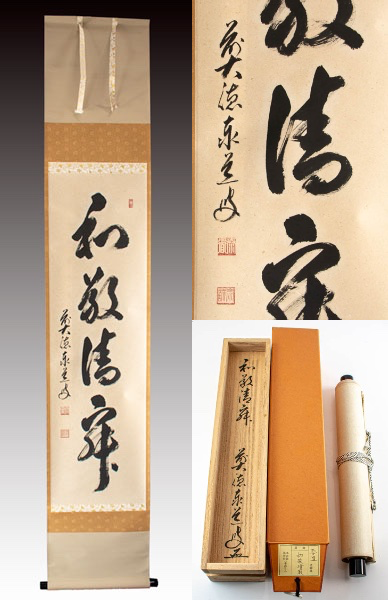 和敬清寂
前大徳泰道叟
敬清寂
前大徳泰道叟
和敬清寂
前大徳泰道叟